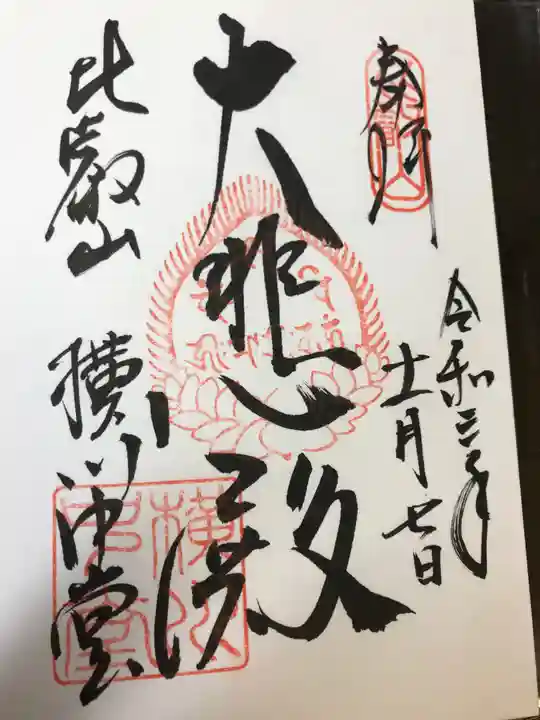 奉拝
令和三年
十一月七日
大悲殿
比叡山
横川中堂
横川中堂